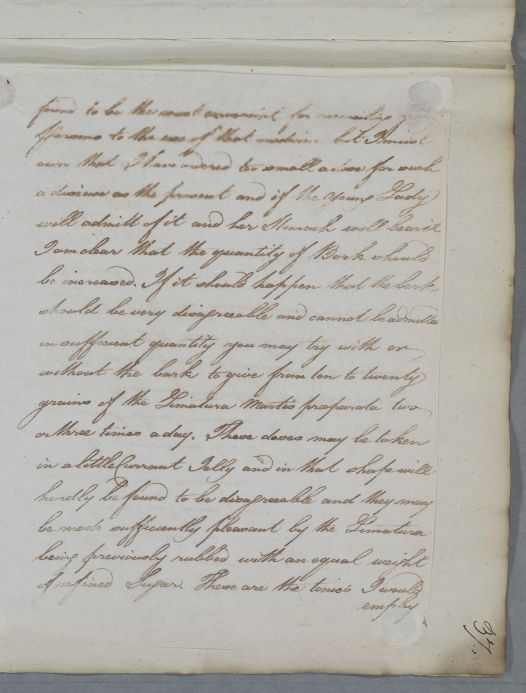 found to be the most convenient for reconciling
persons to the use of that medicine but I must
own that I have ordered too small a dose for such
a disease as the present and if the young Lady
will admitt of it and her Stomach will bear it
I am clear that the quantity of Bark should
be increased. If it should happen that the bark
should be very disagreeable and cannot be admitted
in sufficient quantity you may try with or
without the bark to give from ten to twenty
grains of the Limatura Martis preparata two
or three times a day. These doses may be taken
in a little Currant Jelly and in that shape will
hardly be found to be disagreeable and they may
be made sufficiently pleasant by the Limatura
being previously rubbed with an equal weight
of refined Sugar. These are the tonics I would
employ
37.